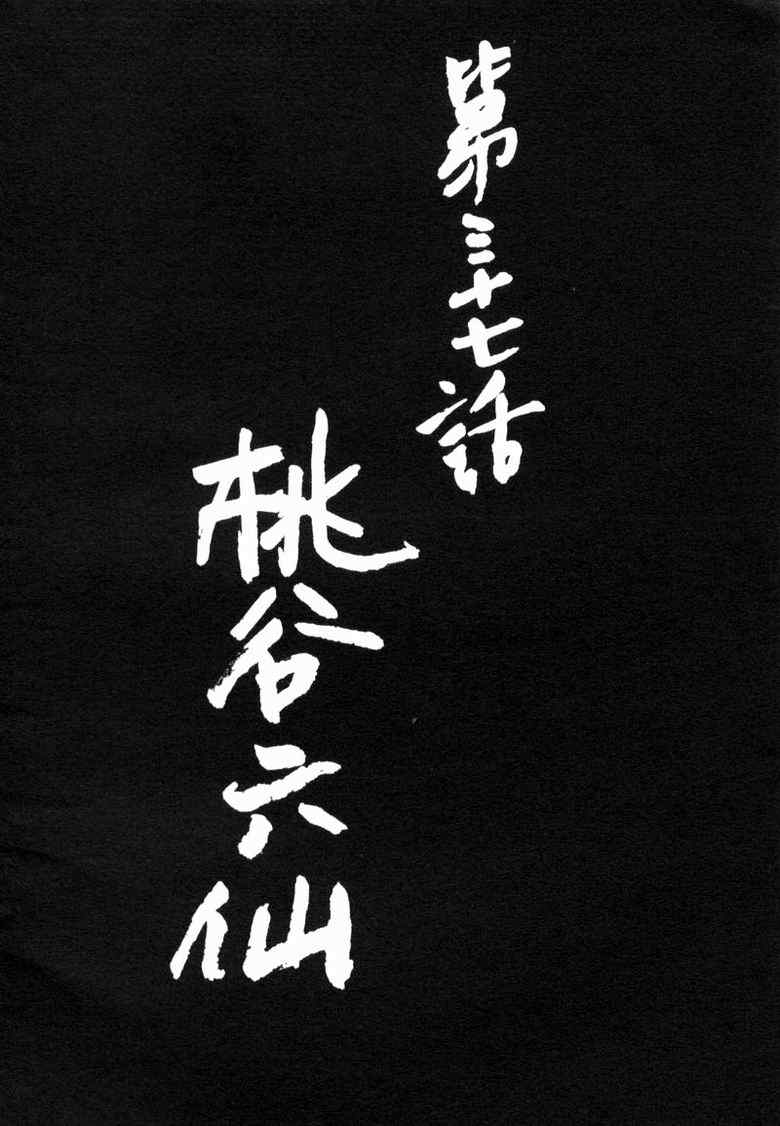 第三十七話
桃谷六仙